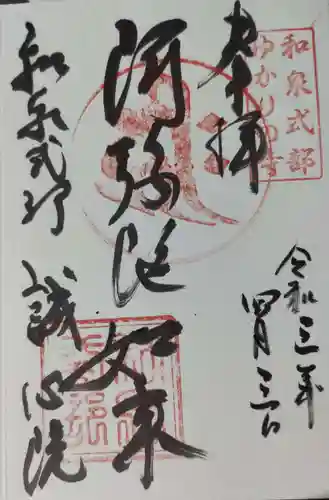 奉拝
和泉式部
ゆかりの寺
令和三年
四月三日
阿弥陀如来
和泉式部
誠心院